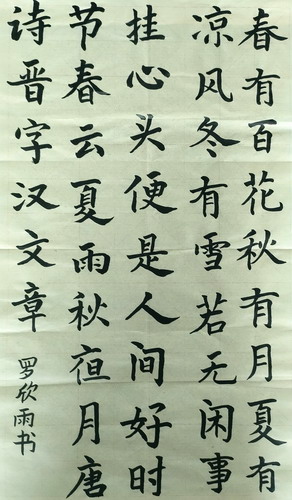 春有百花秋有月夏有
凉风冬有雪若无闲事
挂心头便是人间好时
节春云夏雨秋夜月唐
诗晋字汉文章
罗欣雨书